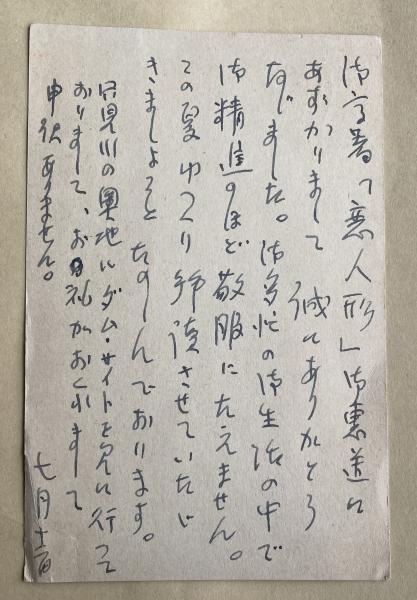 御高著「恋人形」御恵送に
あずかりまして 誠にありがとう
存じました。御多忙の御生活の中で
御精進のほど敬服にたえません。
この夏ゆっくり拝読させていただ
きましょうと たのしんでおります。
只見川の奥地にダム・サイトを見に行って
おりまして、お礼がおくれまして
申訳ありません。
七月十一日